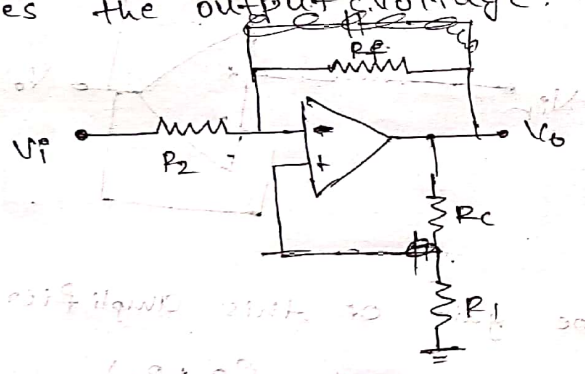 es the output voltage.
Rf
Vi
R2
-
+
Vo
Rc
R1